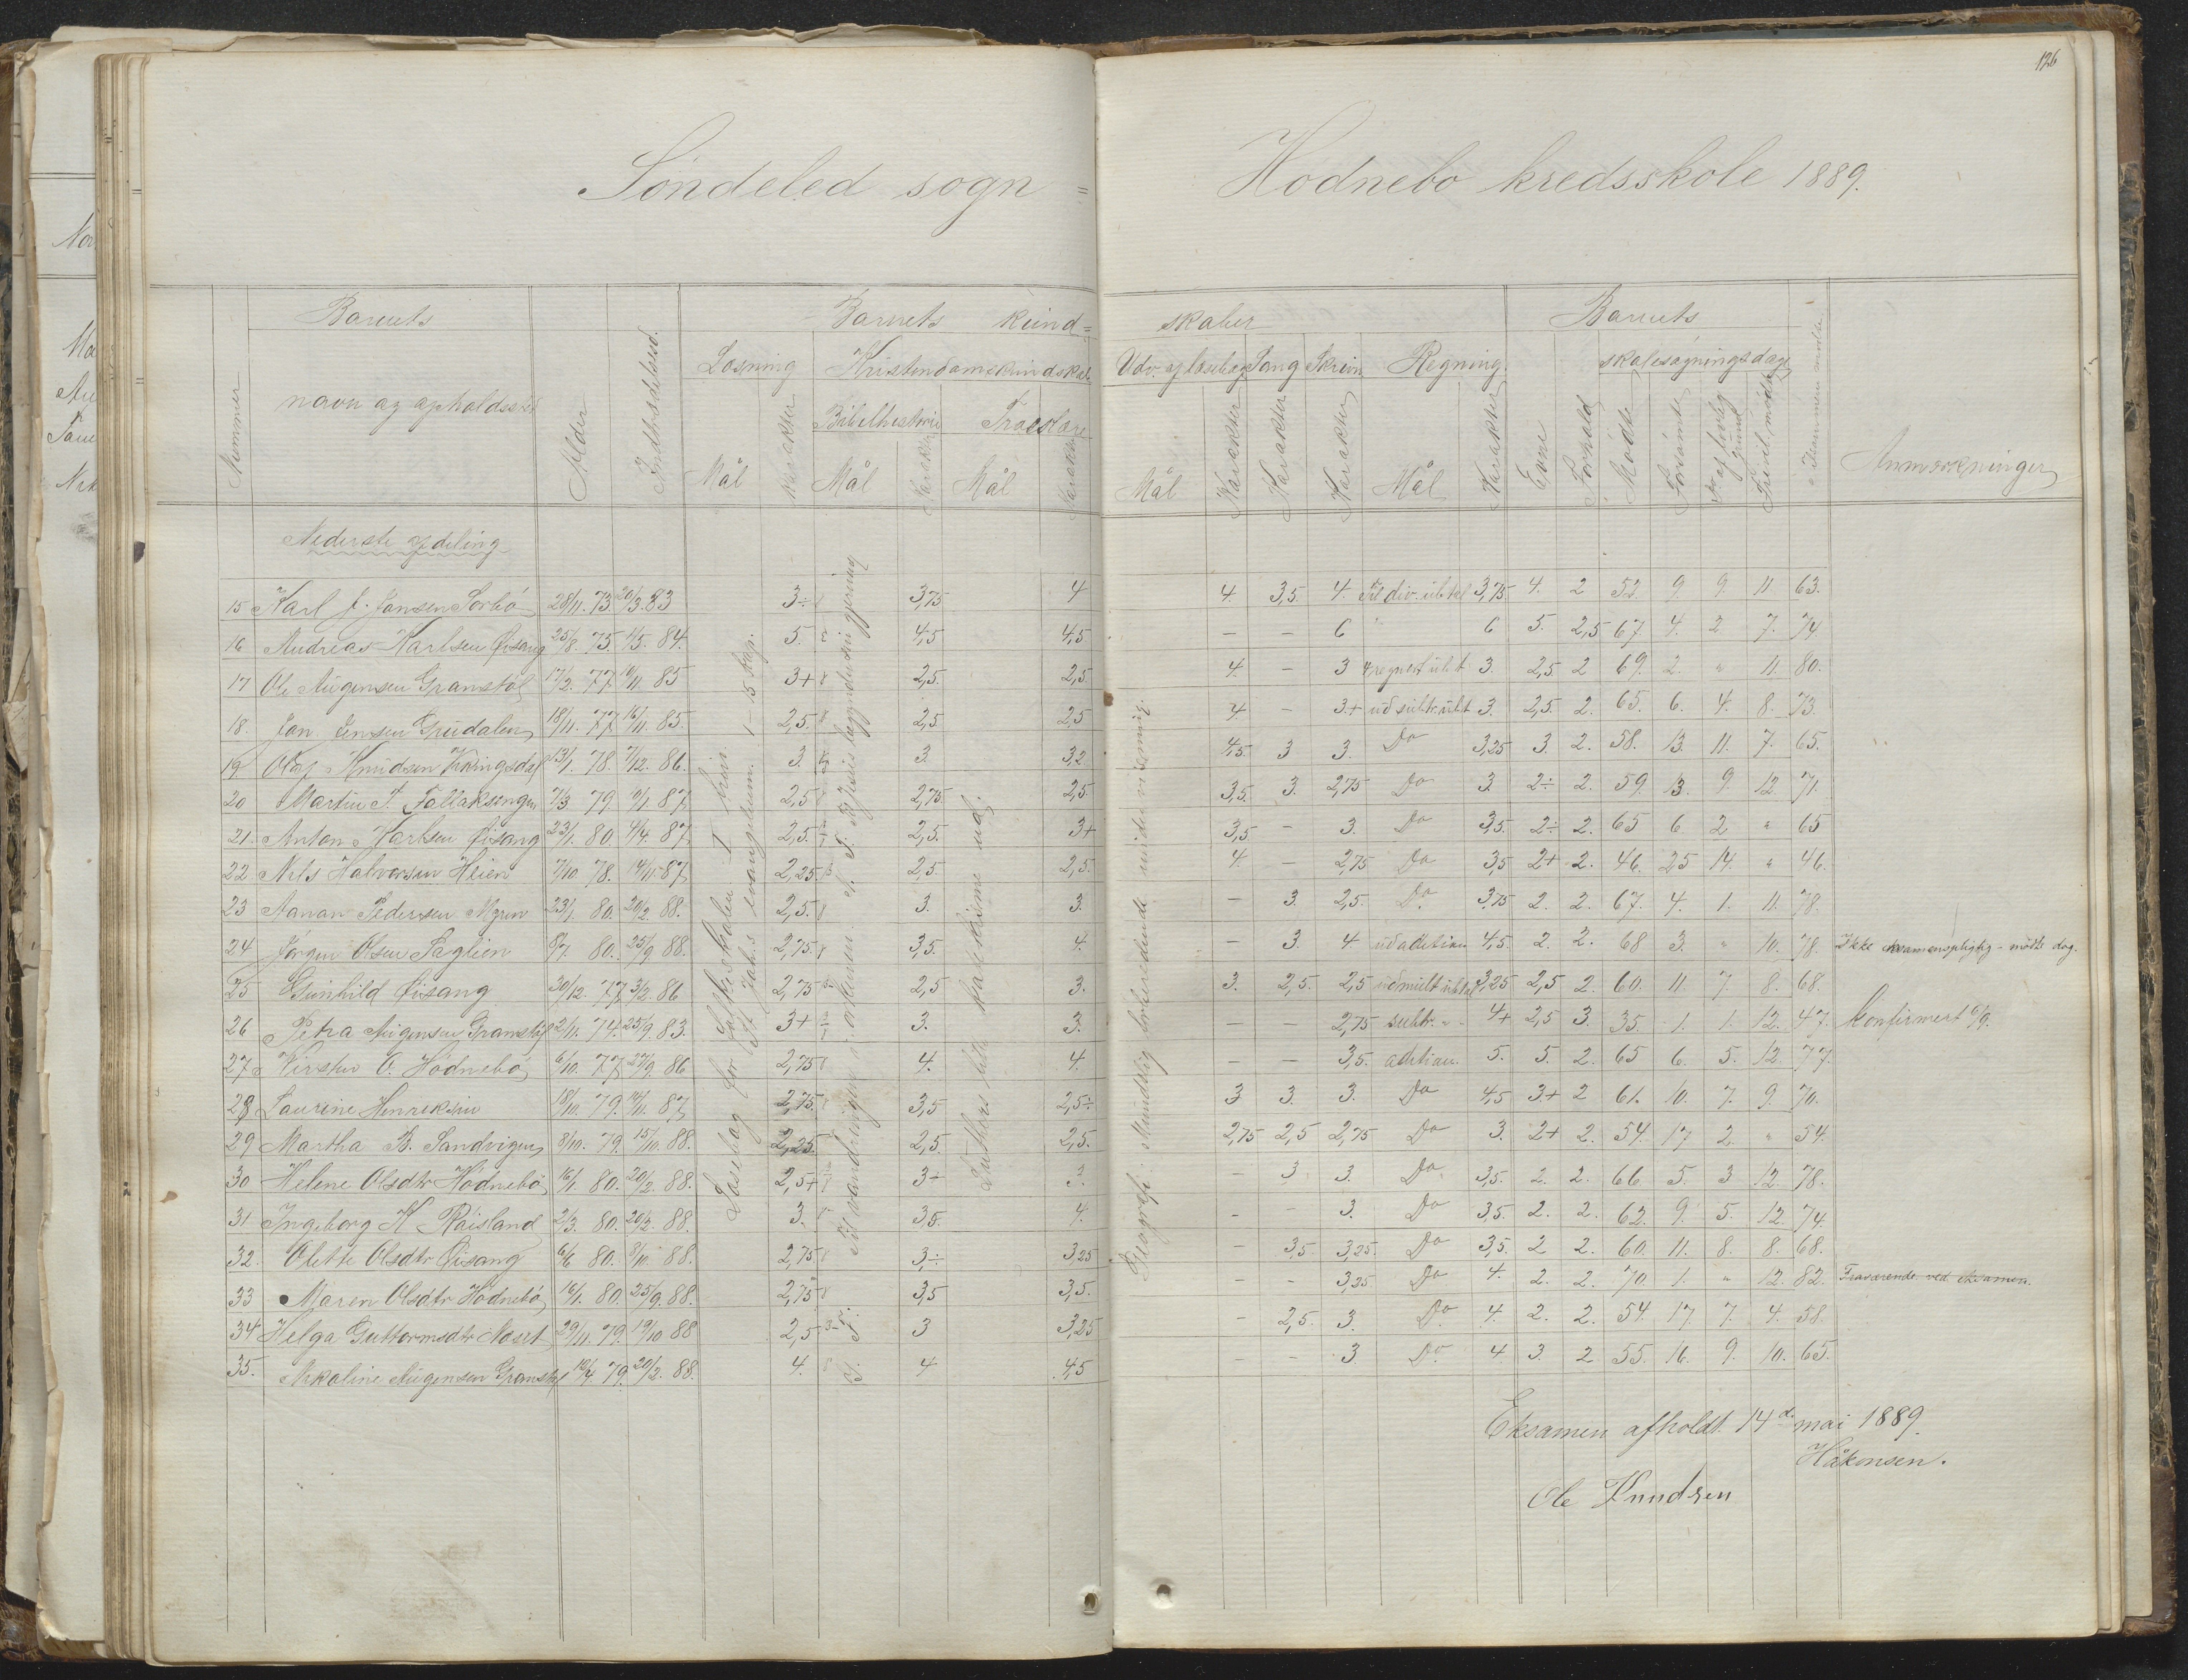 126
Söndeled sogn =
Hödnebö kredsskole 1889.
Nummer
Barnets
navn og opholdssted
Alder
Indtrædelsestid.
Barnets kund=
Læsning
Kristendomskundskab
Mål
Karakter
Bibelhistorie
Mål
Karakter
Troeslære
Mål
Karakter
skaber
Udv. af læsebog
Mål
Karakter
Sang
Karakter
Skrivn.
Karakter
Regning.
Mål
Karakter
Barnets
Evne
Forhold
skolesøgningsdage
Mödte
Forsömte
Fravillig mödte
Anmærkninger
Nederste afdeling
Læsebog for Folkeskolen I hein.
St Joh.s evangelium. 1-15 kap.
Til vandringen i örkenen. N. T. Til Jesu
N. T.
Luthers lille katekisme ud.
Geografi: Mundtlig forberedende undervisning.
15 Karl J. Jansen Sorbö 28/11. 73 20/3. 83 3÷ 3,75 4 4. 3,5. 4. Til div. ubt tal 3,75 4. 2 52 9. 9 11 63.
16 Andreas Karlsen Øisang 25/8. 75. 1/5. 84. 5. 4,5 4,5 – – 6 " 6 5. 2,5 67. 4. 2 7. 74
17 Ole Augensen Granstöl 17/2. 77. 10/11. 85 3+ 2,5. 2,5 4. – 3 4 regnart. ubt 3. 2,5. 2 69. 2. " 11. 80.
18. Jon Jensen Grudalen 18/11. 77. 16/11. 85. 2,5. 2,5 2,5 4. – 3.+ ud subtr. ubt 3. 2,5. 2. 65. 6. 4. 8. 73.
19 Olaf Knudsen Vikingsdal 13/1. 78. 7/12. 86. 3. 3. 3,2 4,5. 3 3. Do 3,25 3. 2. 58. 13. 11. 7. 65.
20 Martin T. Follaksengen 7/3 79. 10/1. 87. 2,5 2,75. 2,5. 3,5. 3. 2,75 Do 3 2÷ 2. 59. 13. 9. 12 71.
21. Anton Karlsen Øisang 23/1. 80. 4/4. 87. 2,5. 2,5. 3+ 3,5 – 3. Do 3,5. 2÷ 2. 65 6. 2 " 65
22 Nils Halvorsen Heien 7/10 78. 14/11. 87. 2,25 2,5. 2,5. 4 – 2,75 Do 3,5 2+ 2. 46. 25 14. " 46.
23 Aanon Pedersen Myren 23/1. 80. 20/2. 88. 2,5. 3. 3. – 3. 2,5. Do. 3,75 2. 2. 67. 4. 1. 11. 78.
24 Jörgen Olsen Paglien 8/7. 80. 25/9 88. 2,75 3,5. 4. – 3. 4 ud adition 4,5. 2. 2. 68 3. " 10. 78. Ikke eksamenspligtig – mödte dog.
25 Gunhild Øisang 30/12. 77. 3/2. 86 2,75 2,5 3. 3. 2,5. 2,5 ud mult ubt tal 3,25 2,5 2. 60. 11. 7. 8. 68.
26 Petra Augensen Granstöl 2/11. 74. 25/9. 83. 3+ 3. 3. – – 2,75 subtr. " 4+ 2,5 3. 35. 1. 1. 12. 47. Konfirmert 6/9.
27 Kirsten O. Hödnebö 6/10. 77. 27/9 86 2,75 4. 4. – – 3,5. adition. 5. 5. 2. 65 6. 5. 12. 77.
28 Laurine Henriksen 18/10. 79. 14/11. 87. 2,75. 3,5 2,5÷ 3 3. 3. Do 4,5 3+ 2 61. 10. 7. 9 70.
29 Martha B. Sandvigen 8/10. 79. 15/10. 88. 2,25. 2,5. 2,5. 2,75 2,5 2,75 Do 3. 2+ 2. 54. 17. 2. " 54.
30 Helene Olsdtr Hödnebö 16/1. 80. 20/2. 88. 2,5+ 3÷ 3. – 3 3. Do 3,5. 2. 2. 66 5. 3 12. 78.
31 Ingeborg K Röisland 2/3. 80. 20/2. 88. 3. 3,5. 4. – – 3. Do 3,5. 2. 2. 62. 9. 5. 12. 74.
32. Olette Olsdtr Øisang 6/6 80. 8/10. 88. 2,75 3÷ 3,25 – 3,5. 3,25. Do 3,5. 2 2. 60. 11. 8. 8. 68.
33 Maren Olsdtr Hödnebö 16/1. 80. 25/9. 88. 2,75. 3,5 3,5. – – 3,25 Do 4. 2. 2. 70. 1. " 12. 82. Fraværende ved eksamen.
34 Helga Guttormsdtr Næset 29/11. 79. 19/10 88 2,5 3 3,25 – 2,5. 3. Do. 4. 2. 2. 54. 17. 7. 4. 58.
35. Nikoline Augensen Granstöl 10/4 79. 20/2. 88. 4. 4. 4,5 – – 3. Do. 4 3. 2 55. 16. 9. 10. 65.
Eksamen afholdt 14de mai 1889.
Håkonsen.
Ole Knudsen